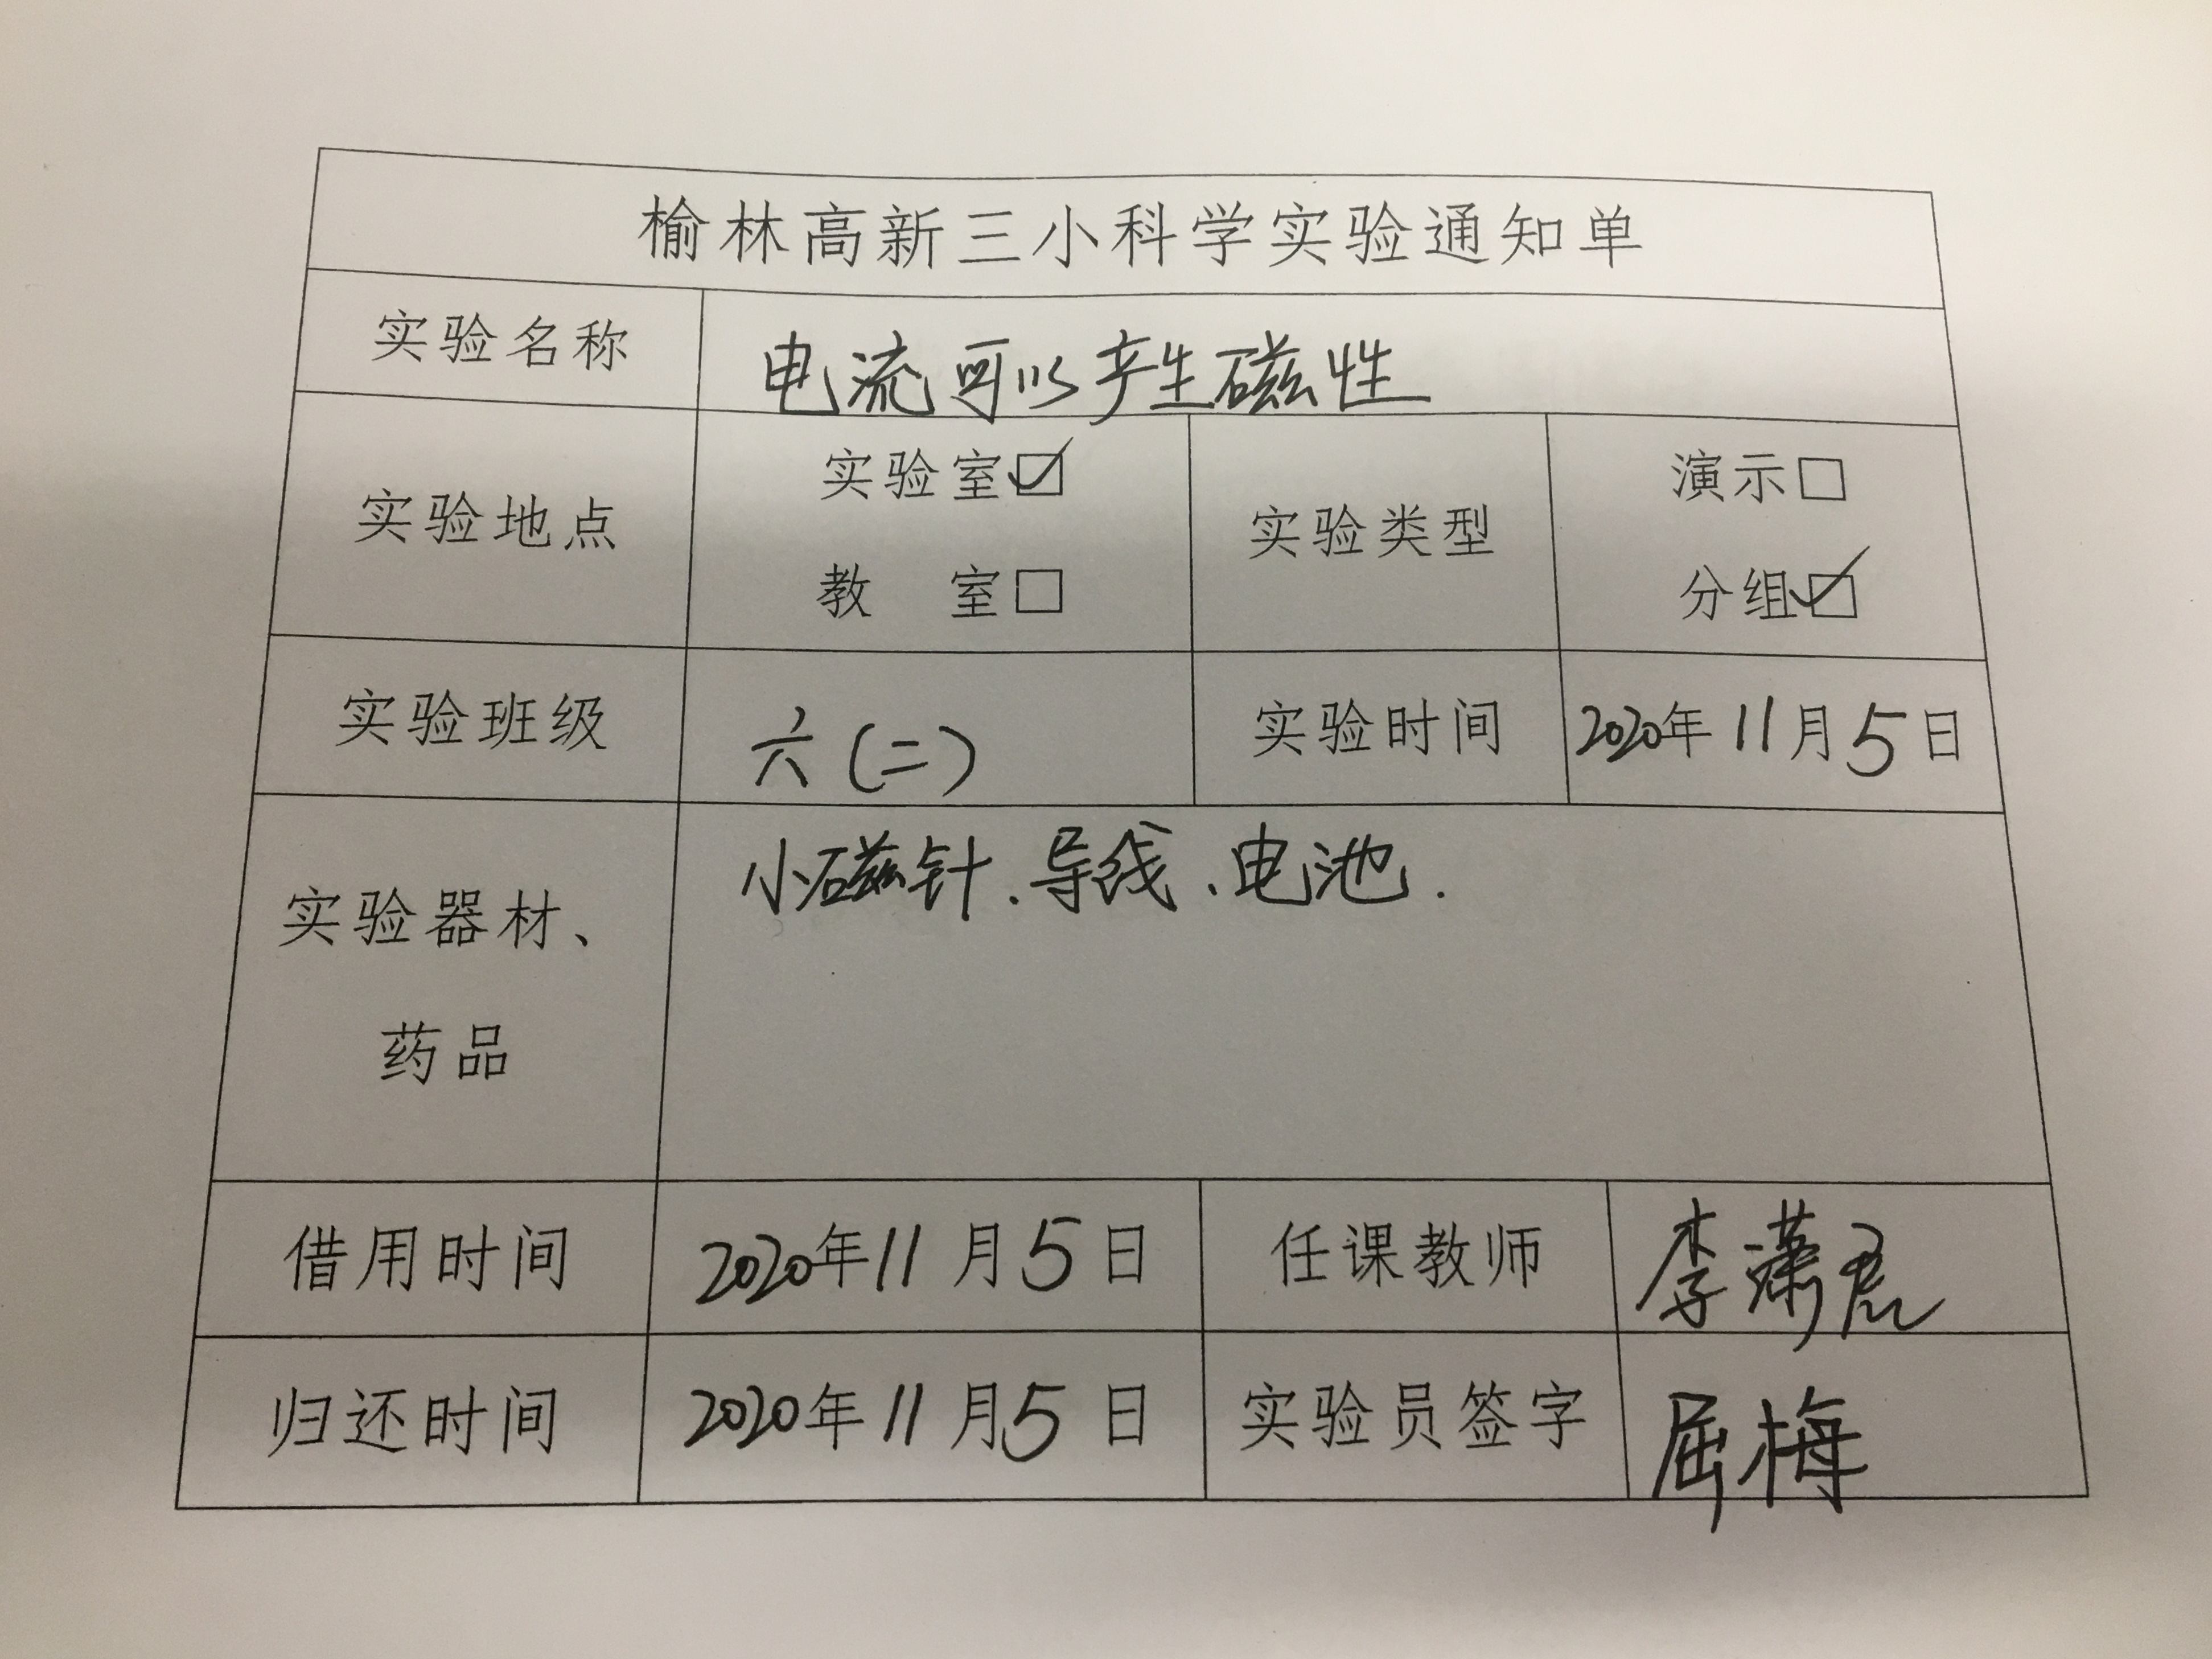 榆林高新三小科学实验通知单
实验名称 电流可以产生磁性
实验室☑ 演示□
实验地点 实验类型
教 室□ 分组☑
实验班级 六(二) 实验时间 2020年11月5日
小磁针、导线、电池.
实验器材、
药品
借用时间 2020年11月5日 任课教师 李潇
归还时间 2020年11月5日 实验员签字 屈梅